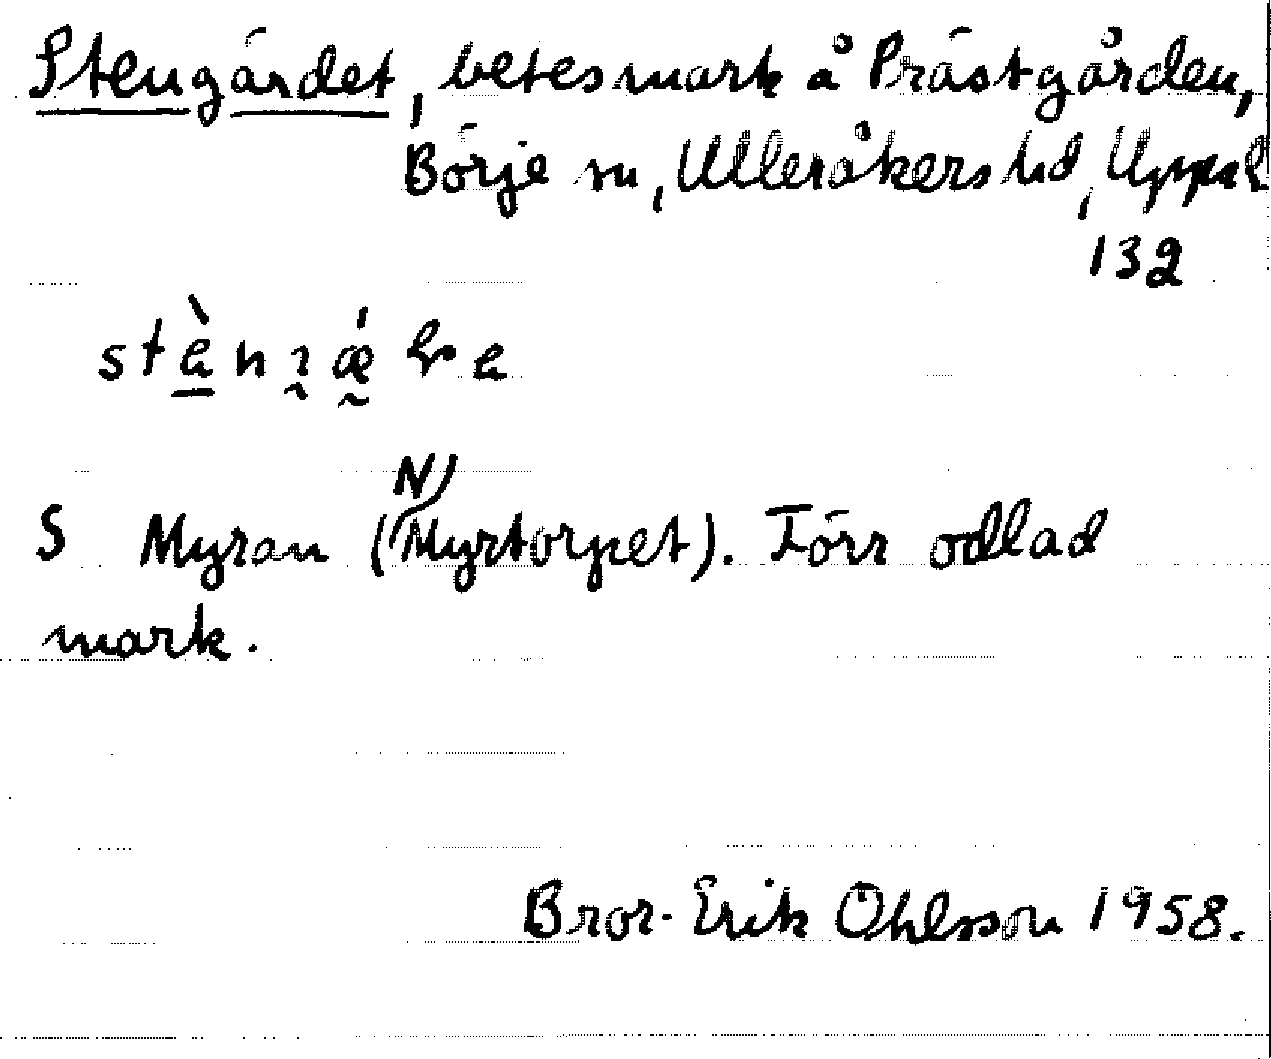 Stengärdet, betesmark å Prästgården,
Börje sn, Ulleråkers hd, Uppsl
132
S Myran (Myrtorpet). Förr odlad
N)
mark.
Bror-Erik Ohlsson 1958.